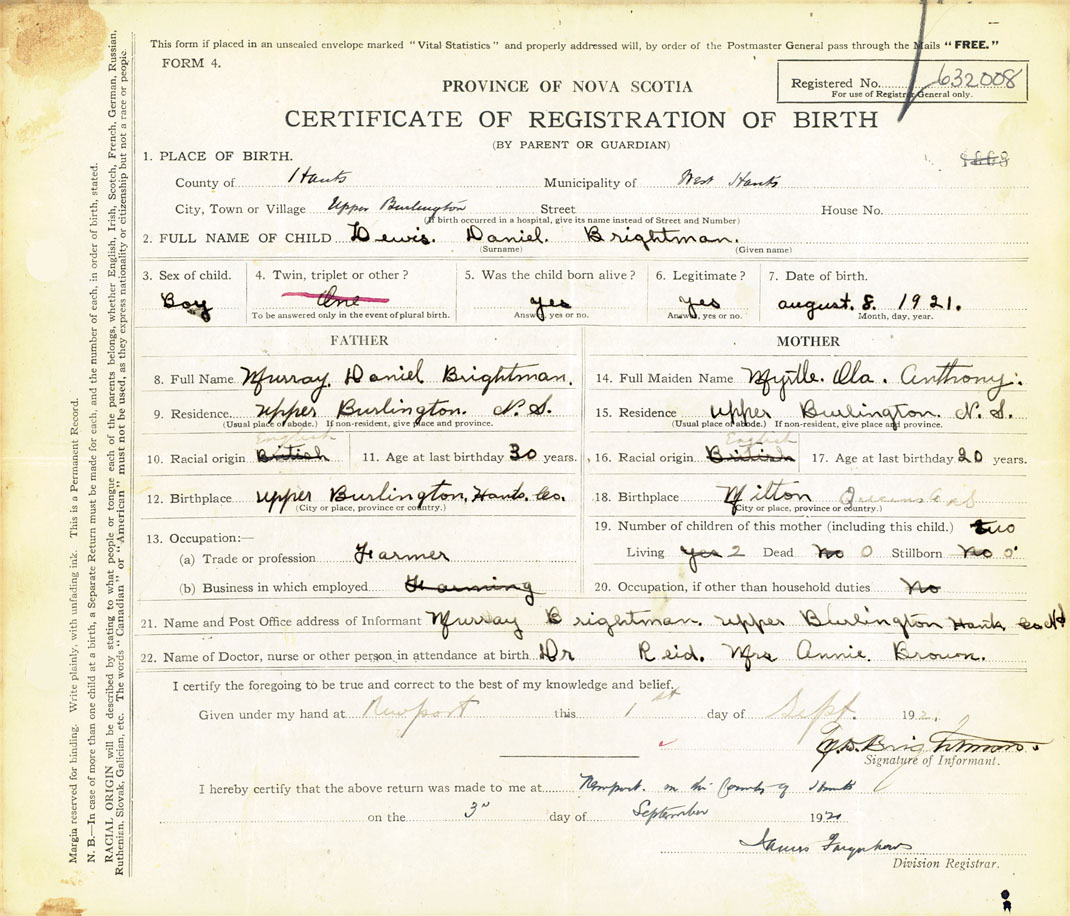 This form if placed in an unsealed envelope marked "Vital Statistics" and properly addressed will, by order of the Postmaster General pass through the Mails "FREE."
FORM 4.
Registered No. 632008
For use of Registrar General only.
PROVINCE OF NOVA SCOTIA
CERTIFICATE OF REGISTRATION OF BIRTH
(BY PARENT OR GUARDIAN)
1. PLACE OF BIRTH.
County of Hants Municipality of West Hants
City, Town or Village Upper Burlington Street House No.
(If birth occurred in a hospital, give its name instead of Street and Number)
2. FULL NAME OF CHILD Lewis. Daniel. Brightman.
(Surname) (Given name)
3. Sex of child. 4. Twin, triplet or other? 5. Was the child born alive? 6. Legitimate? 7. Date of birth.
Boy One yes yes august. 8. 1921.
To be answered only in the event of plural birth. Answer, yes or no. Answer, yes or no. Month, day, year.
FATHER
8. Full Name Murray. Daniel Brightman.
9. Residence. upper Burlington. N. S.
(Usual place of abode.) If non-resident, give place and province.
English
10. Racial origin British 11. Age at last birthday 30 years.
12. Birthplace upper Burlington, Hants. Co.
(City or place, province or country.)
13. Occupation:—
(a) Trade or profession Farmer
(b) Business in which employed Farming
MOTHER
14. Full Maiden Name Myrtle. Ola. Anthony.
15. Residence upper Burlington. N. S.
(Usual place of abode.) If non-resident, give place and province.
English
16. Racial origin British 17. Age at last birthday 20 years.
18. Birthplace Milton Queens Co NS
(City or place, province or country.)
19. Number of children of this mother (including this child.) two
Living yes 2 Dead No 0 Stillborn No 0
20. Occupation, if other than household duties No
21. Name and Post Office address of Informant Murray Brightman. upper Burlington Hants Co NS
22. Name of Doctor, nurse or other person in attendance at birth Dr Reid. Mrs Annie. Brown.
I certify the foregoing to be true and correct to the best of my knowledge and belief.
Given under my hand at Newport this 1st day of Sept. 1921.
Brightman
Signature of Informant.
I hereby certify that the above return was made to me at Newport in the County of Hants
on the 3rd day of September 1921
James
Division Registrar.
Margin reserved for binding. Write plainly, with unfading ink. This is a Permanent Record.
N. B.—In case of more than one child at a birth, a Separate Return must be made for each, and the number of each, in order of birth, stated.
RACIAL ORIGIN will be described by stating to what people or tongue each of the parents belongs, whether English, Irish, Scotch, French, German, Russian,
Ruthenian, Slovak, Galician, etc. The words "Canadian" or "American" must not be used, as they express nationality or citizenship but not a race or people.